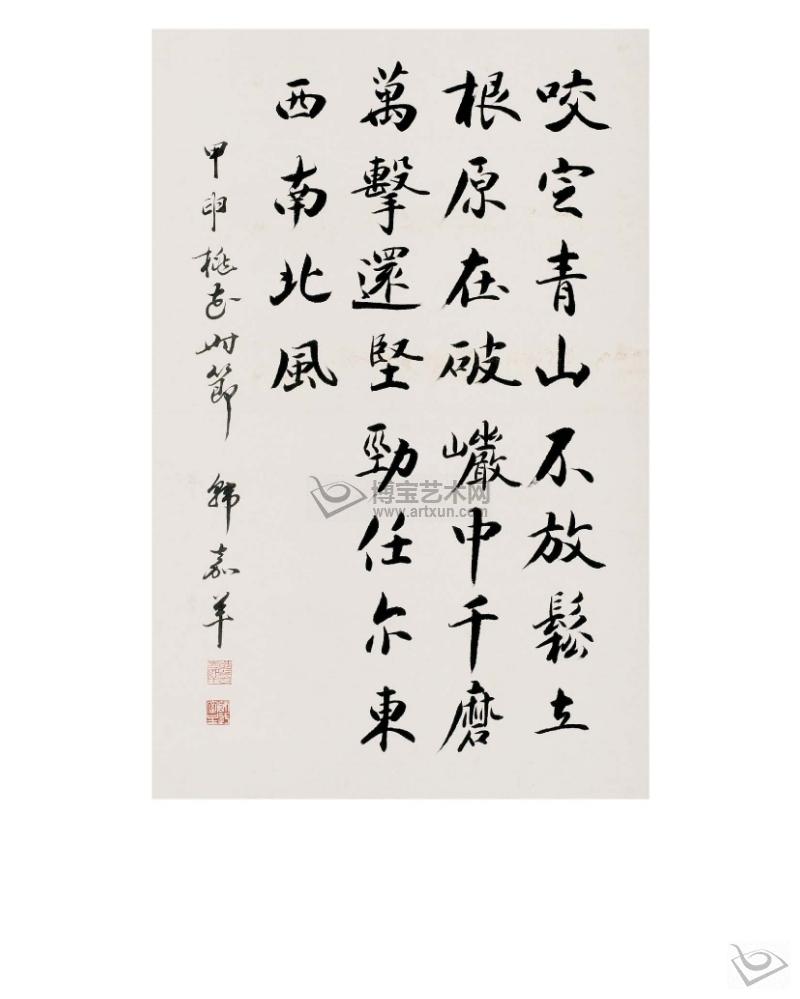 咬定青山不放鬆立
根原在破巖中千磨
萬擊還堅勁任尔東
西南北風
甲申桃花時節 韩嘉羊
博宝艺术网
www.artxun.com